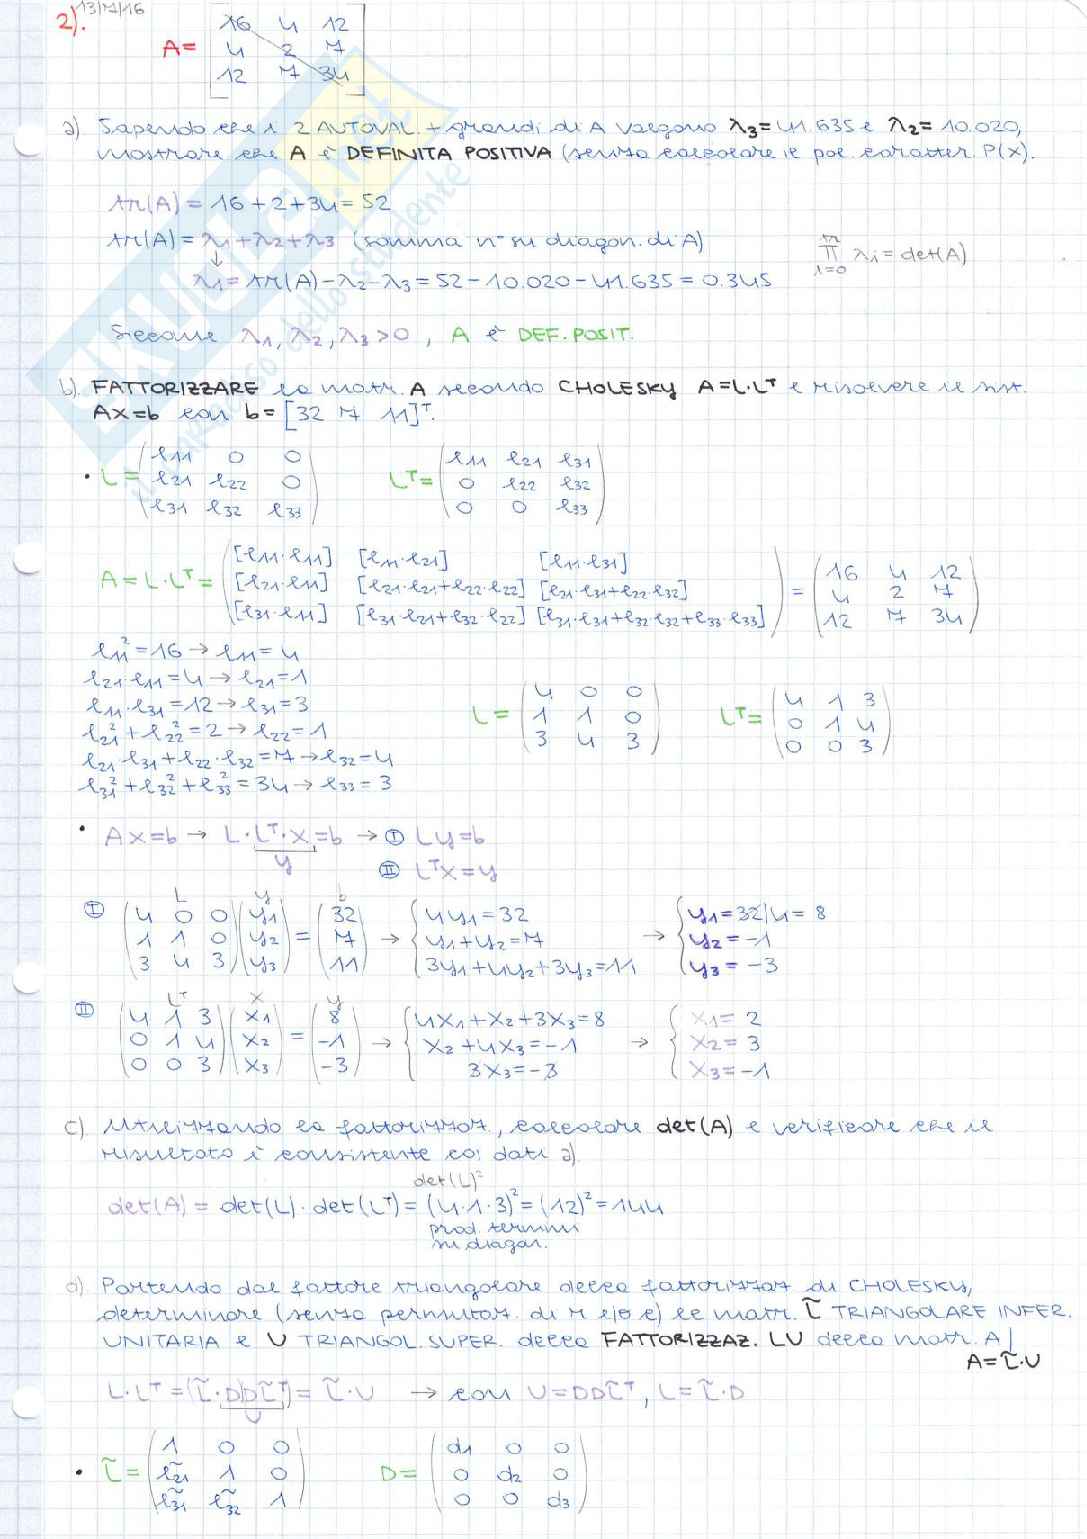 13/7/16
2). A= [16 4 12
4 2 7
12 7 34]
a) Sapendo che i 2 AUTOVAL. + grandi di A valgono λ3=41.635 e λ2= 10.020,
mostrare che A è DEFINITA POSITIVA (senza calcolare il pol. caratter. P(x).
tr(A) = 16+2+34= 52
tr(A) = λ1+λ2+λ3 (somma n° su diagon. di A)
π λi = det(A)
i=0
↓
λ1= tr(A)-λ2-λ3 = 52-10.020-41.635 = 0.345
Siccome λ1, λ2, λ3 >0, A è DEF. POSIT.
b) FATTORIZZARE la matr. A secondo CHOLESKY A=L·Lᵀ e risolvere il sist.
Ax=b con b= [32 7 11]ᵀ.
• L= (l11 0 0
l21 l22 0
l31 l32 l33)
Lᵀ= (l11 l21 l31
0 l22 l32
0 0 l33)
A=L·Lᵀ= ([l11·l11] [l11·l21] [l11·l31]
[l21·l11] [l21·l21+l22·l22] [l21·l31+l22·l32]
[l31·l11] [l31·l21+l32·l22] [l31·l31+l32·l32+l33·l33]) = (16 4 12
4 2 7
12 7 34)
l11²=16 → l11=4
l21·l11=4 → l21=1
l11·l31=12 → l31=3
l21²+l22²=2 → l22=1
l21·l31+l22·l32=7 → l32=4
l31²+l32²+l33²=34 → l33=3
L= (4 0 0
1 1 0
3 4 3)
Lᵀ= (4 1 3
0 1 4
0 0 3)
• Ax=b → L·Lᵀ·x=b → Ⓘ Ly=b
y Ⓘⓘ Lᵀx=y
L y b
Ⓘ (4 0 0
1 1 0
3 4 3) (y1
y2
y3) = (32
7
11) → {4y1=32
y1+y2=7
3y1+4y2+3y3=11 → {y1=32/4=8
y2=-1
y3=-3
Lᵀ x y
II (4 1 3
0 1 4
0 0 3) (x1
x2
x3) = (8
-1
-3) → {4x1+x2+3x3=8
x2+4x3=-1
3x3=-3 → {x1=2
x2=3
x3=-1
c) Utilizzando la fattorizzaz., calcolare det(A) e verificare che il
risultato è consistente coi dati a).
det(L)²
det(A) = det(L)·det(Lᵀ) = (4·1·3)² = (12)² = 144
prod. termini
su diagon.
d) Partendo dal fattore triangolare della fattorizzaz di CHOLESKY,
determinare (senza permutaz. di r e/o c) le matr. L̃ TRIANGOLARE INFER.
UNITARIA e U TRIANGOL. SUPER. della FATTORIZZAZ. LU della matr. A |
A=L̃·U
L·Lᵀ=(L̃·D)DL̃ᵀ)= L̃·U → con U=DDL̃ᵀ, L=L̃·D
U
• L̃= (1 0 0
l̃21 1 0
l̃31 l̃32 1)
D= (d1 0 0
0 d2 0
0 0 d3)